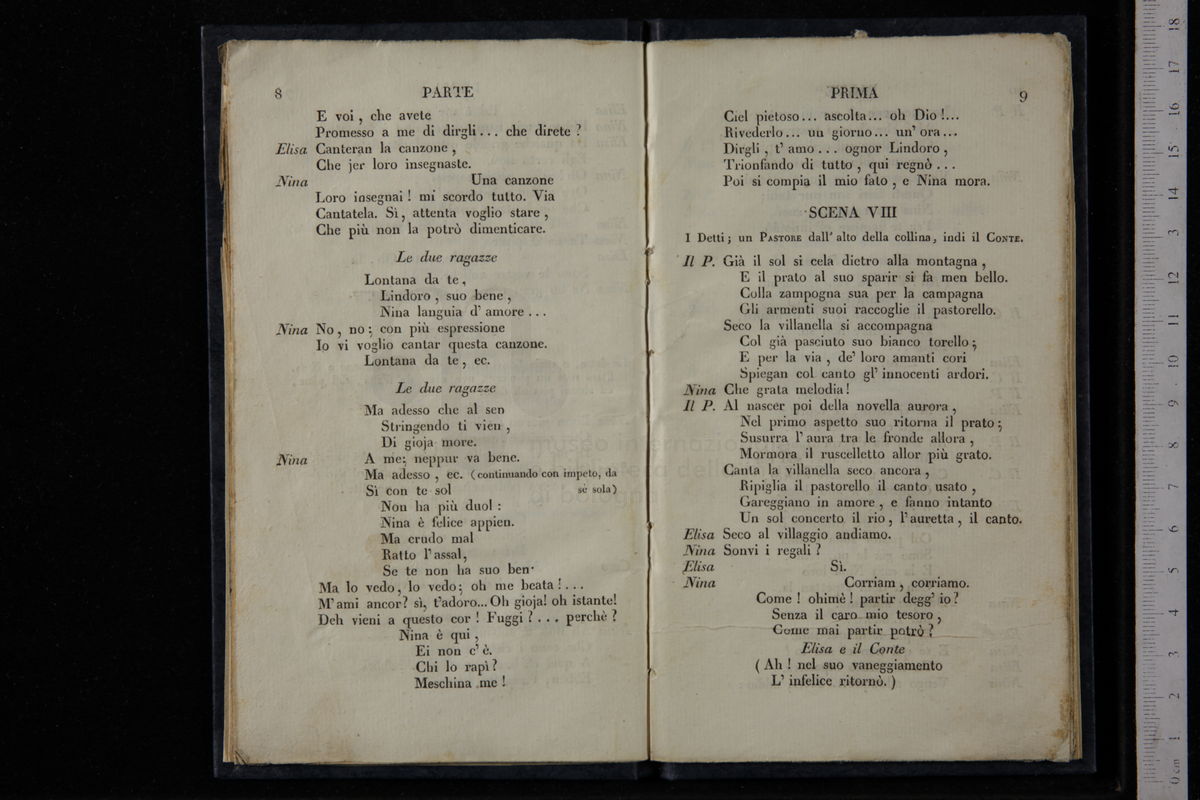 8 PARTE
E voi , che avete
Promesso a me di dirgli . . . che direte ?
Elisa Canteran la canzone ,
Che jer loro insegnaste.
Nina Una canzone
Loro insegnai ! mi scordo tutto. Via
Cantatela. Sì, attenta voglio stare ,
Che più non la potrò dimenticare.
Le due ragazze
Lontana da te ,
Lindoro , suo bene ,
Nina languia d' amore . . .
Nina No , no ; con più espressione
Io vi voglio cantar questa canzone.
Lontana da te , ec.
Le due ragazze
Ma adesso che al sen
Stringendo ti vien ,
Di gioja more.
Nina A me; neppur va bene.
Ma adesso , ec. (continuando con impeto, da
Sì con te sol sè sola)
Non ha più duol :
Nina è felice appien.
Ma crudo mal
Ratto l'assal,
Se te non ha suo ben·
Ma lo vedo, lo vedo; oh me beata ! . . .
M'ami ancor? sì, t'adoro... Oh gioja! oh istante!
Deh vieni a questo cor ! Fuggi ? . . . perchè ?
Nina è qui ,
Ei non c' è.
Chi lo rapì ?
Meschina me !
PRIMA 9
Ciel pietoso... ascolta... oh Dio !...
Rivederlo... un giorno... un' ora...
Dirgli , t' amo . . . ognor Lindoro ,
Trionfando di tutto , qui regnò . . .
Poi si compia il mio fato , e Nina mora.
SCENA VIII
I Detti ; un Pastore dall' alto della collina, indi il Conte.
Il P. Già il sol si cela dietro alla montagna ,
E il prato al suo sparir si fa men bello.
Colla zampogna sua per la campagna
Gli armenti suoi raccoglie il pastorello.
Seco la villanella si accompagna
Col già pasciuto suo bianco torello ;
E per la via , de' loro amanti cori
Spiegan col canto gl' innocenti ardori.
Nina Che grata melodia !
Il P. Al nascer poi della novella aurora ,
Nel primo aspetto suo ritorna il prato ;
Susurra l' aura tra le fronde allora ,
Mormora il ruscelletto allor più grato.
Canta la villanella seco ancora ,
Ripiglia il pastorello il canto usato ,
Gareggiano in amore , e fanno intanto
Un sol concerto il rio , l'auretta , il canto.
Elisa Seco al villaggio andiamo.
Nina Sonvi i regali ?
Elisa Sì.
Nina Corriam , corriamo.
Come ! ohimè ! partir degg' io ?
Senza il caro mio tesoro ,
Come mai partir potrò ?
Elisa e il Conte
( Ah ! nel suo vaneggiamento
L' infelice ritornò. )
museo internazionale